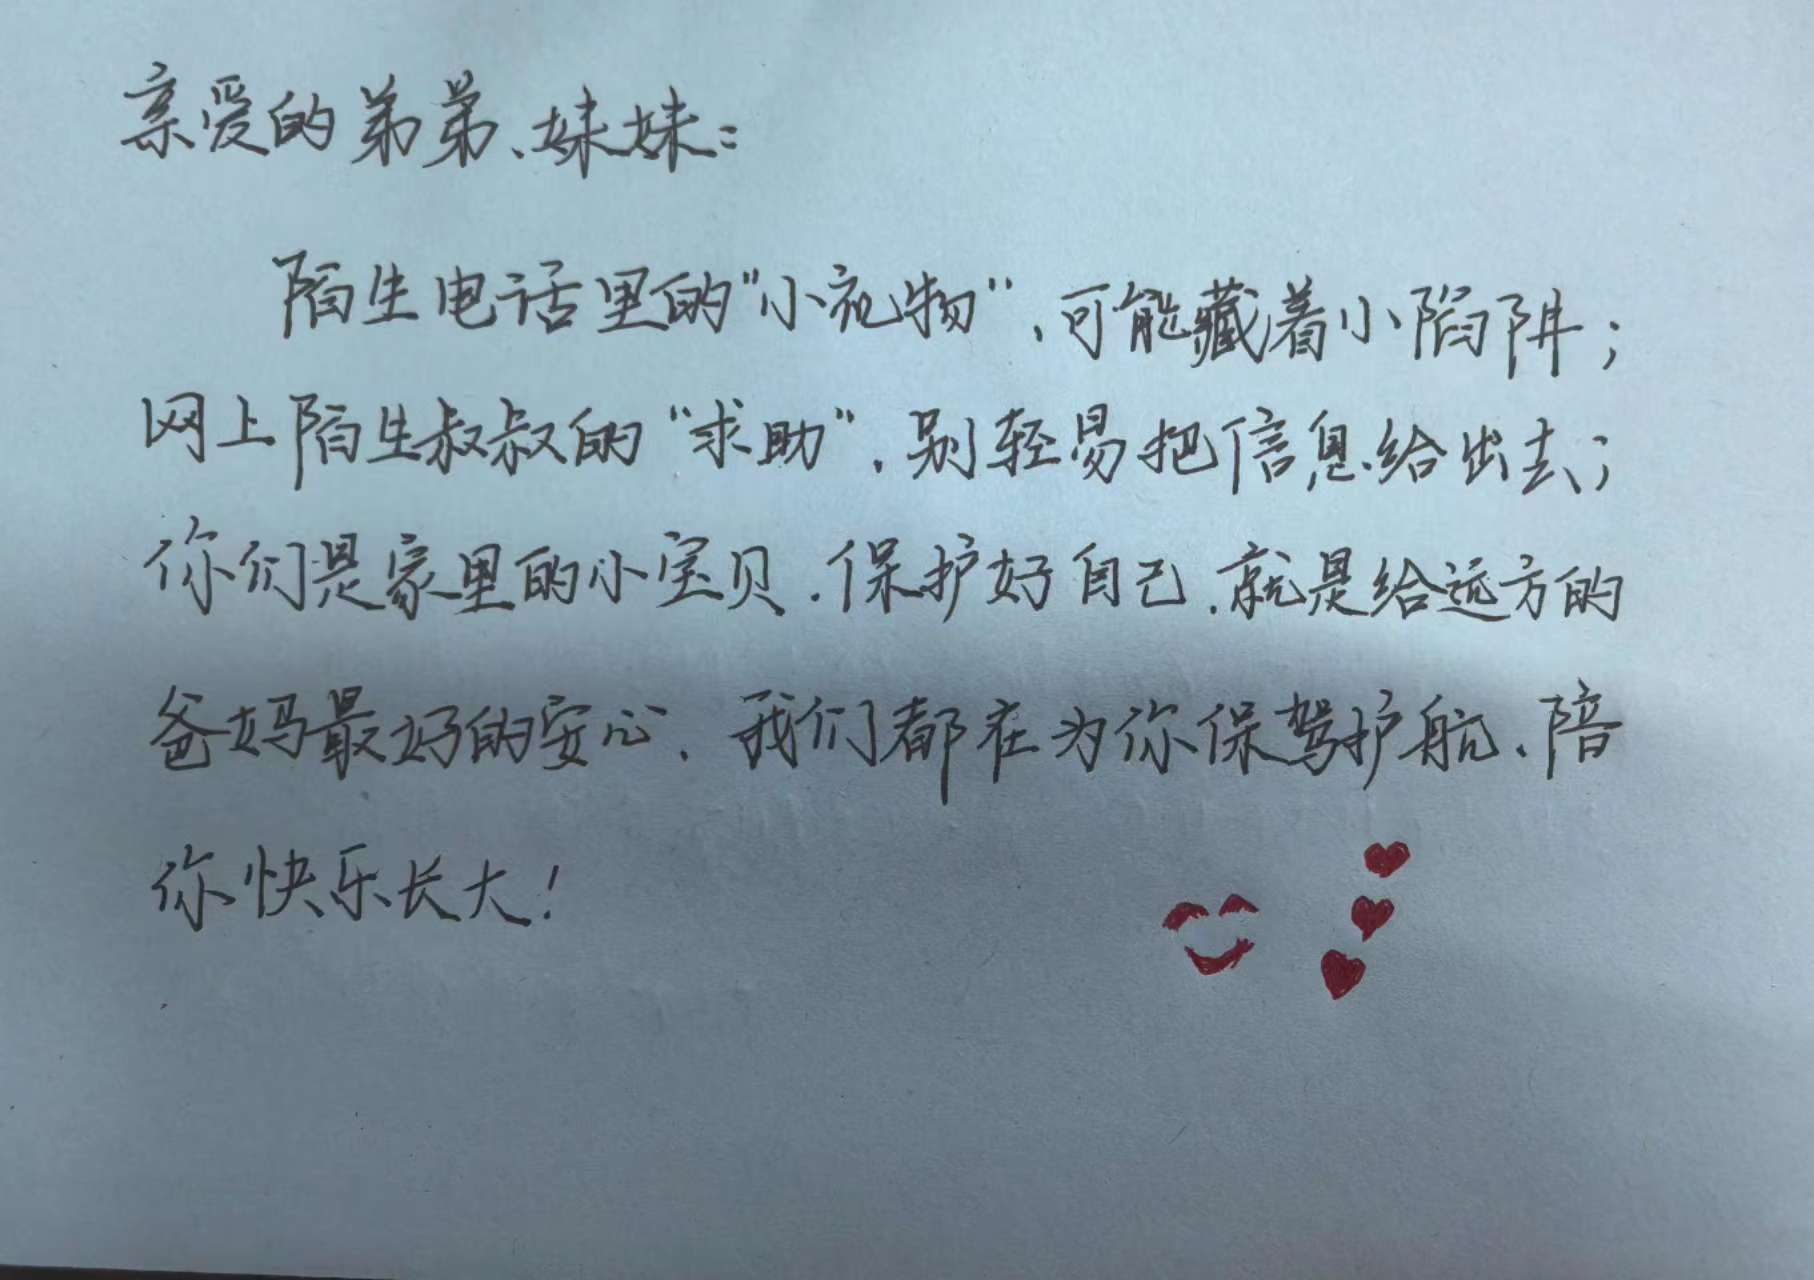 亲爱的弟弟、妹妹：
陌生电话里的“小礼物”，可能藏着小陷阱；
网上陌生叔叔的“求助”，别轻易把信息给出去；
你们是家里的小宝贝，保护好自己，就是给远方的
爸妈最好的安心，我们都在为你保驾护航、陪
你快乐长大！